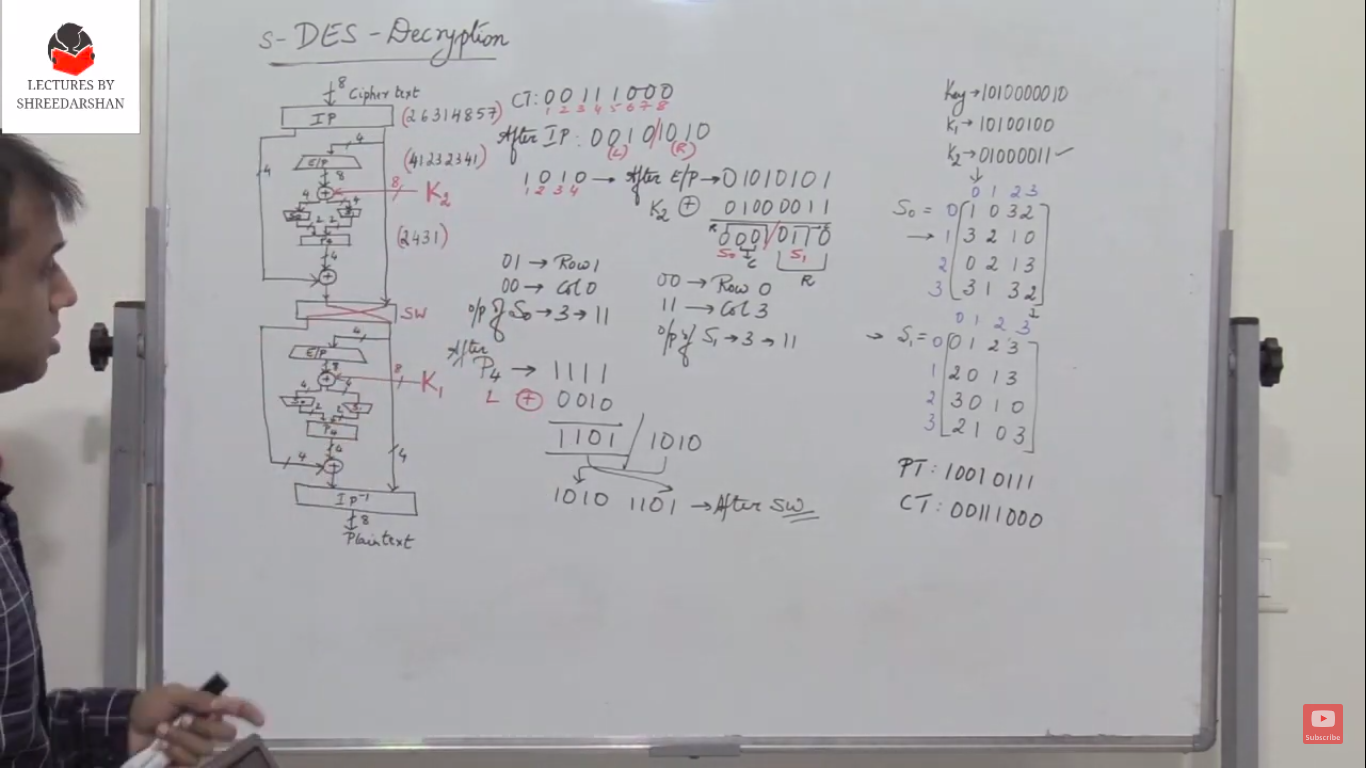 LECTURES BY
SHREEDARSHAN
S-DES-Decryption
8 Cipher text
IP
(26314857)
4
4
E/P
(41232341)
8
8
K2
4 4
S0 S1
2 2
P4
(2431)
4
SW
4
E/P
8
8
K1
4 4
2 2
P4
4
4
4
IP-1
8
Plaintext
CT: 00111000
1 2 3 4 5 6 7 8
After IP: 0010/1010
(L) (R)
1010 → After E/P → 01010101
1 2 3 4
K2 ⊕ 01000011
R R
000 / 0110
S0 C S1
R
01 → Row 1
00 → Col 0
o/p of S0 → 3 → 11
00 → Row 0
11 → Col 3
o/p of S1 → 3 → 11
After
P4 → 1111
L ⊕ 0010
1101 / 1010
1010 1101 → After SW
Key → 1010000010
K1 → 10100100
K2 → 01000011 ✓
0 1 2 3
S0 = 0 1 0 3 2
→ 1 3 2 1 0
2 0 2 1 3
3 3 1 3 2
0 1 2 3
→ S1 = 0 0 1 2 3
1 2 0 1 3
2 3 0 1 0
3 2 1 0 3
PT: 10010111
CT: 00111000
Subscribe